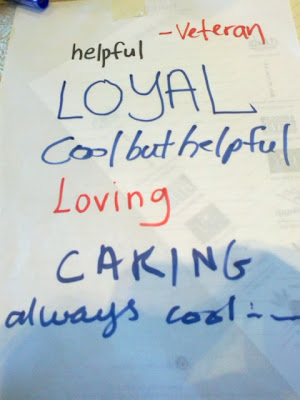 -Veteran
helpful
LOYAL
Cool but helpful
Loving
CARING
always cool